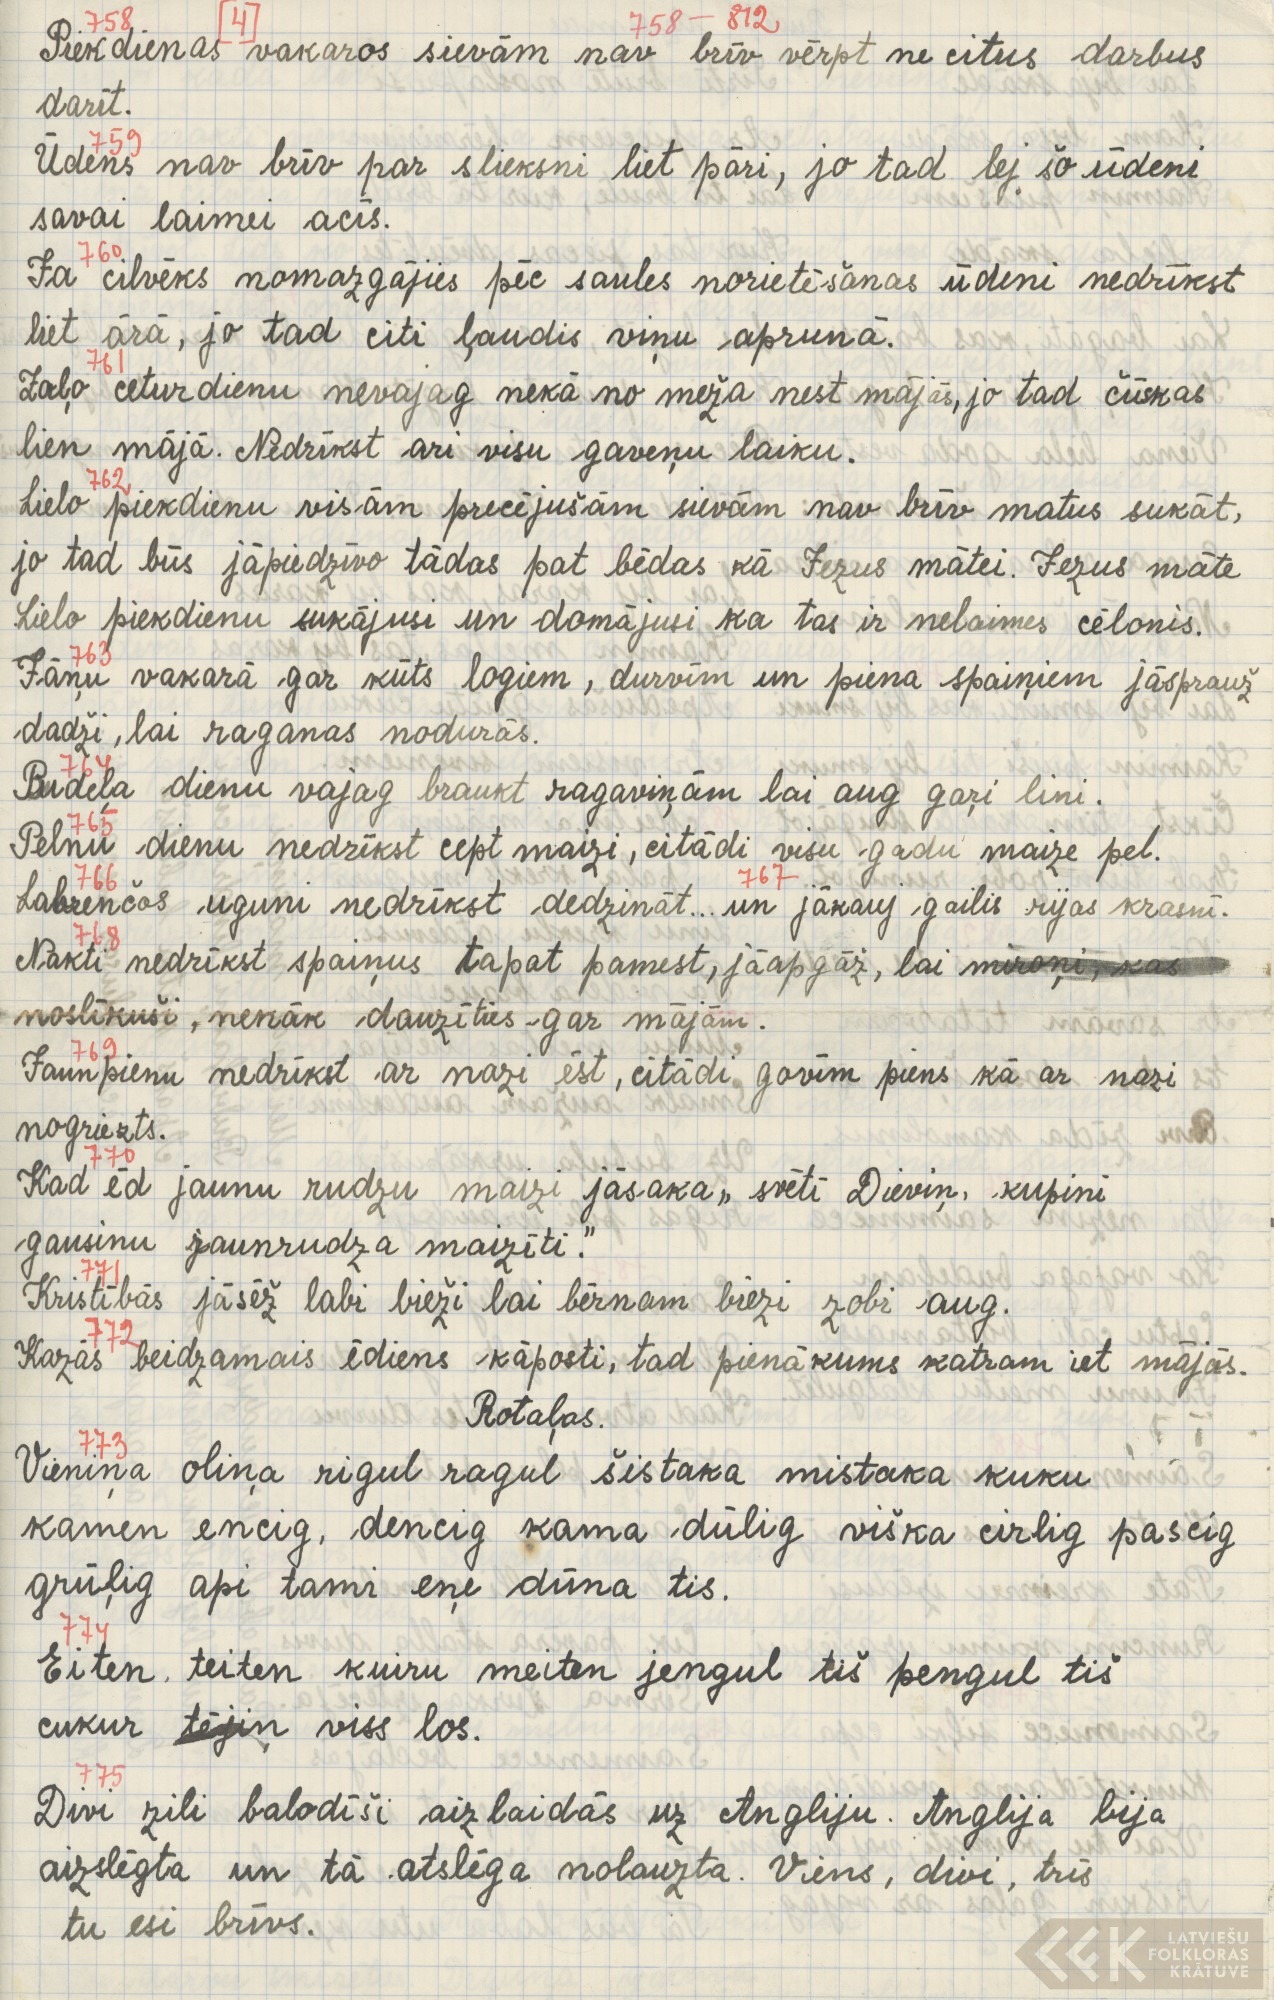 758 [4] 758 – 812
Piekdienas vakaros sievām nav brīv vērpt ne citus darbus
darīt.
759
Ūdens nav brīv par slieksni liet pāri, jo tad lej šo ūdeni
savai laimei acīs.
760
Ja cilvēks nomazgājies pēc saules norietēšanas ūdeni nedrīkst
liet ārā, jo tad citi ļaudis viņu aprunā.
761
Zaļo ceturdienu nevajag nekā no meža nest mājās, jo tad čūskas
lien mājā. Nedrīkst ari visu gaveņu laiku.
762
Lielo piekdienu visām precējušām sievām nav brīv matus sukāt,
jo tad būs jāpiedzīvo tādas pat bēdas kā Jezus mātei. Jezus māte
Lielo piekdienu sukājusi un domājusi ka tas ir nelaimes cēlonis.
763
Jāņu vakarā gar kūts logiem, durvīm un piena spaiņiem jāsprauž
dadži, lai raganas nodurās.
764
Budēļa dienu vajag braukt ragaviņām lai aug gaŗi lini.
765
Pelnu dienu nedrīkst cept maizi, citādi visu gadu maize pel.
766 767
Labrenčos uguni nedrīkst dedzināt... un jākauj gailis rijas krasnī.
768
Nakti nedrīkst spaiņus tapat pamest, jāapgāž, lai miroņi, kas
noslīkuši, nekāk dauzīties gar mājām.
769
Jaunpienu nedrīkst ar nazi ēst, citādi govīm piens kā ar nazi
nogriezts.
770
Kad ēd jaunu rudzu maizi jāsaka „ svētī Dieviņ, kupini
gausinu jaunrudza maizīti."
771
Kristībās jāsēž labi bieži lai bērnam biezi zobi aug.
772
Kazās beidzamais ēdiens kāposti, tad pienākums katram iet mājās.
Rotaļas.
773
Vieniņa oliņa rigul ragul šistaka mistaka kuku
kamen encig, dencig kama dūlig viška cirlig pascig
grūļig api tami eņe dūna tis.
774
Eiten, teiten kuiru meiten jengul tiš pengul tiš
cukur tējiņ viss los.
775
Divi zili balodīši aizlaidās uz Angliju. Anglija bija
aizslēgta un tā atslēga nolauzta. Viens, divi, trīs
tu esi brīvs.
LATVIEŠU
FOLKLORAS
KRĀTUVE